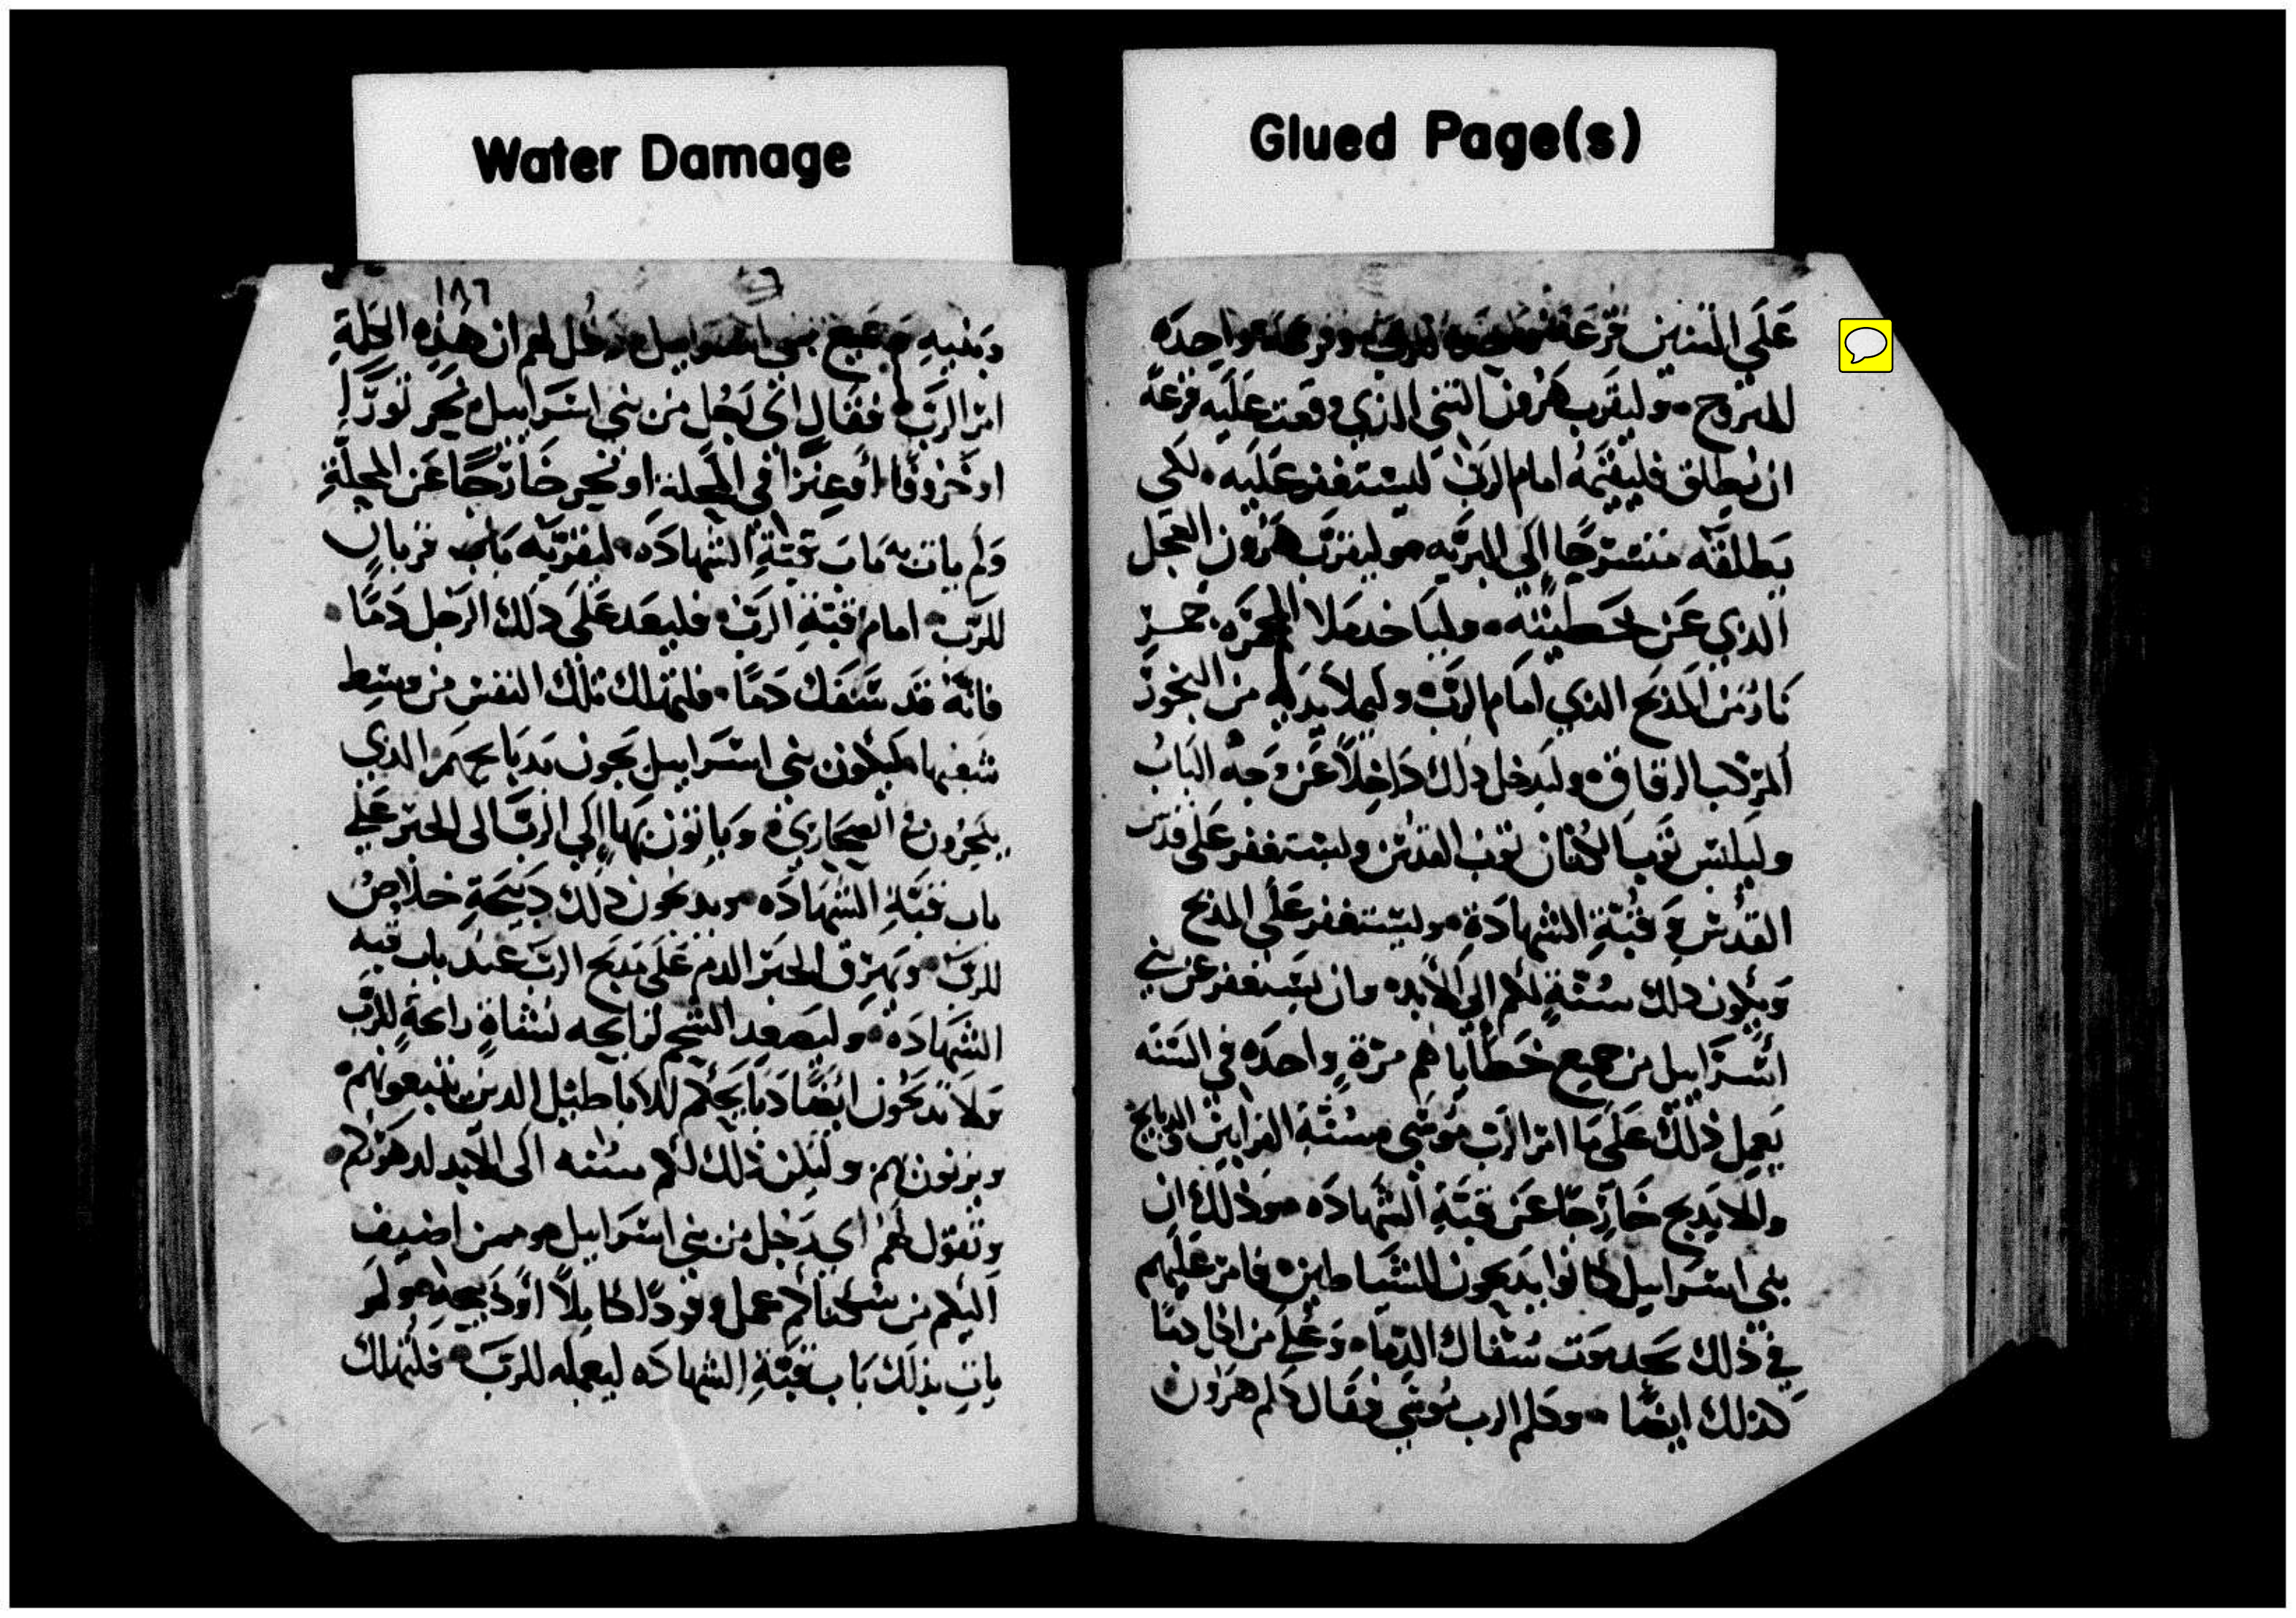 Glued Page(s)
على التنيين قرعة واحده
للمتروح وليقرب هرون التني الذي وقعت عليه قرعة
ان يطلق فليقيمه امام الرب ليستغفر عليه لكي
يطلقه منسرحًا الى البريه وليقرب هرون العجل
الذي عن خطيته ولياخد ملا المجمره جمر
نار من المذبح الذي امام الرب وليملا يديه من البخور
المركب الرقاق وليدخل ذلك داخلاً عن وجه الباب
وليلبس توب الكتان توب القدس وليستغفر على قدس
القدس وقبة الشهادة وليستغفر على المذبح
ويكون ذلك سنةٍ لكم الى الابد وان يستغفر عن بني
اسراييل من جميع خطاياهم مرةٍ واحده في السنه
يعمل ذلك على ما امر الرب موسى وسنة القرابين الدبايح
ولالا يدبح خارجًا عن قبة الشهاده وذلك ان
بني اسراييل كانوا يدبحون للشياطين فامر عليهم
في ذلك بحد موت سفاك الدما وعلى من اكل دمًا
كذلك ايضًا وكلم الرب موسى فقال كلم هرون
Water Damage
١٨٦
وبنيهِ وجميع بني اسراييل وقل لهم ان هذه الخلة
امر الرب فقال اي رجل من بني اسراييل نحر تورًا
او خروفًا او عنزًا في المحلة او نحر خارجًا عن المحلةِ
ولم يات به باب قبة الشهاده ليقربه باب قربان
للرب امام قبة الرب فليعد على ذلك الرجل دمًا
فانه قد سفك دمًا فلتهلك تلك النفس من وسط
شعبها ليكون بني اسراييل يجون بدبايحهم الذي
ينحرون في الصحاري وياتون بها الى الرب الى الحبر على
باب قبة الشهاده ويدبحون ذلك دبيحة خلاص
للرب ويهرق الحبر الدم على مدبح الرب عند باب قبه
الشهادة وليصعد الشحم لرايحه نشاةٍ رايحةٍ للرب
ولا تدبحون ايضًا دبايحكم للاباطيل الدين تتبعونهم
وتزنون بهم وليكن ذلك لكم سنه الى الابد لدهوركم
وتقول لهم اي رجل من بني اسراييل ومن اضيف
اليكم من سكانكم عمل وقودًا كاملاً او دبيحةٍ ولم
يات بذلك باب قبة الشهاده ليعمله للرب فلتهلك